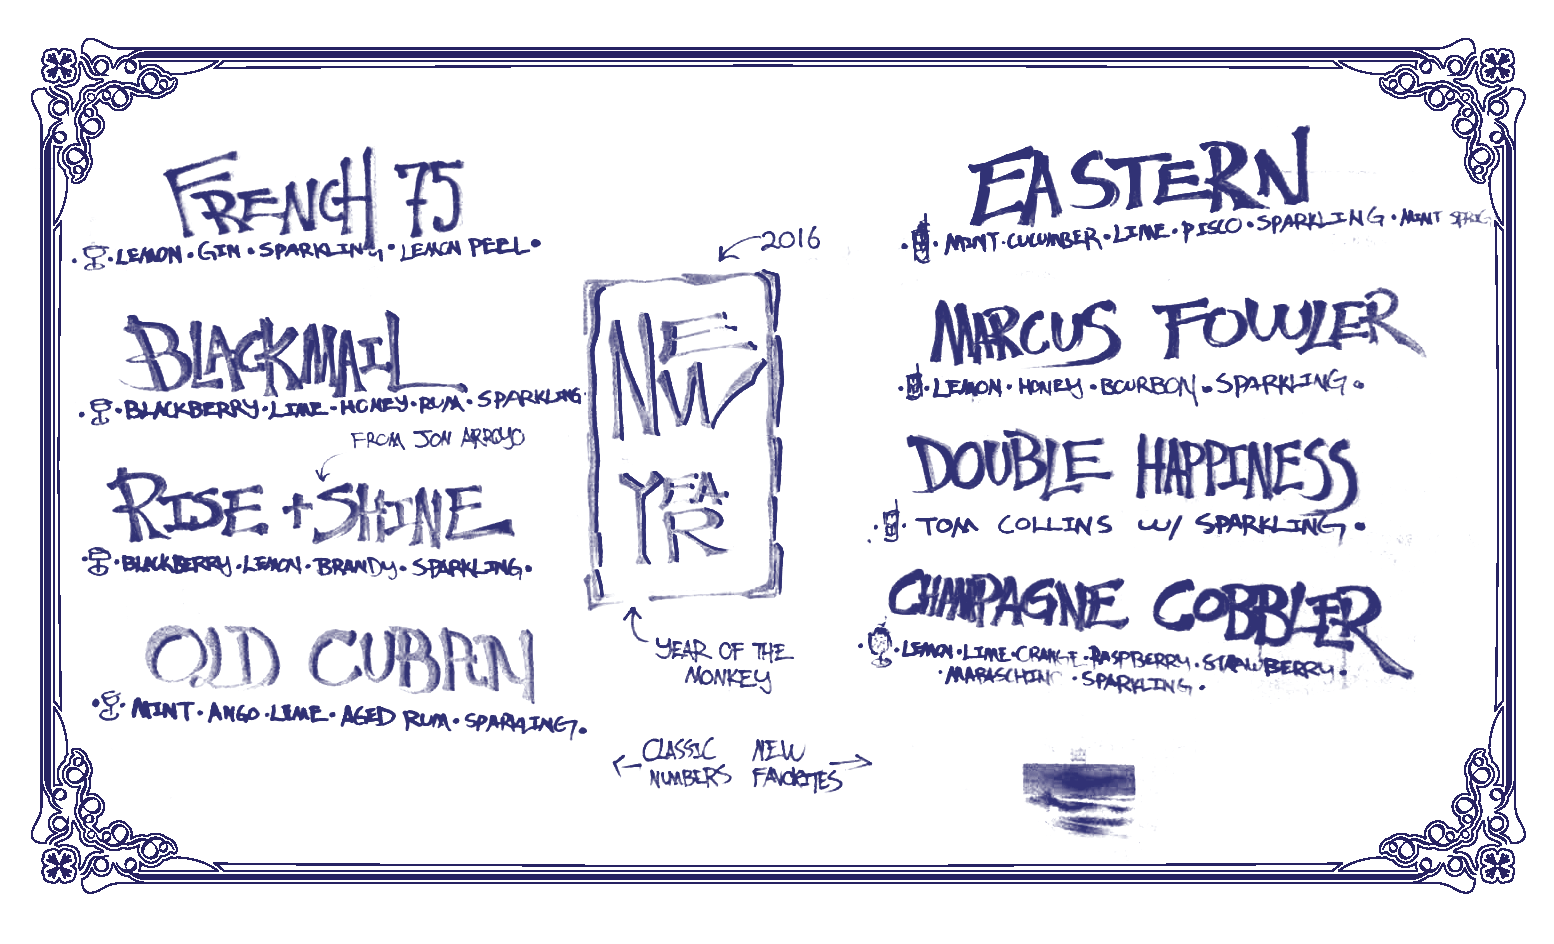 FRENCH 75
• LEMON • GIN • SPARKLING • LEMON PEEL •
BLACKMAIL
• BLACKBERRY • LIME • HONEY • RUM • SPARKLING •
FROM JON ARROYO
RISE + SHINE
• BLACKBERRY • LEMON • BRANDY • SPARKLING •
OLD CUBAN
• MINT • ANGO • LIME • AGED RUM • SPARKLING •
2016
NEW
YEAR
YEAR OF THE
MONKEY
CLASSIC
NUMBERS
NEW
FAVORITES
EASTERN
• MINT • CUCUMBER • LIME • PISCO • SPARKLING • MINT SPRIG
MARCUS FOWLER
• LEMON • HONEY • BOURBON • SPARKLING •
DOUBLE HAPPINESS
• TOM COLLINS W/ SPARKLING •
CHAMPAGNE COBBLER
• LEMON • LIME • ORANGE • RASPBERRY • STRAWBERRY •
• MARASCHINO • SPARKLING •